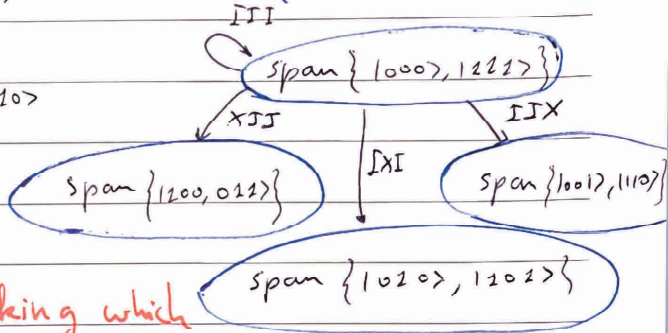 III
span { |000>, |111> }
10>
XII
IIX
IXI
span {|100, 011>}
span {|001>, |110>}
span { |010>, |101> }
king which